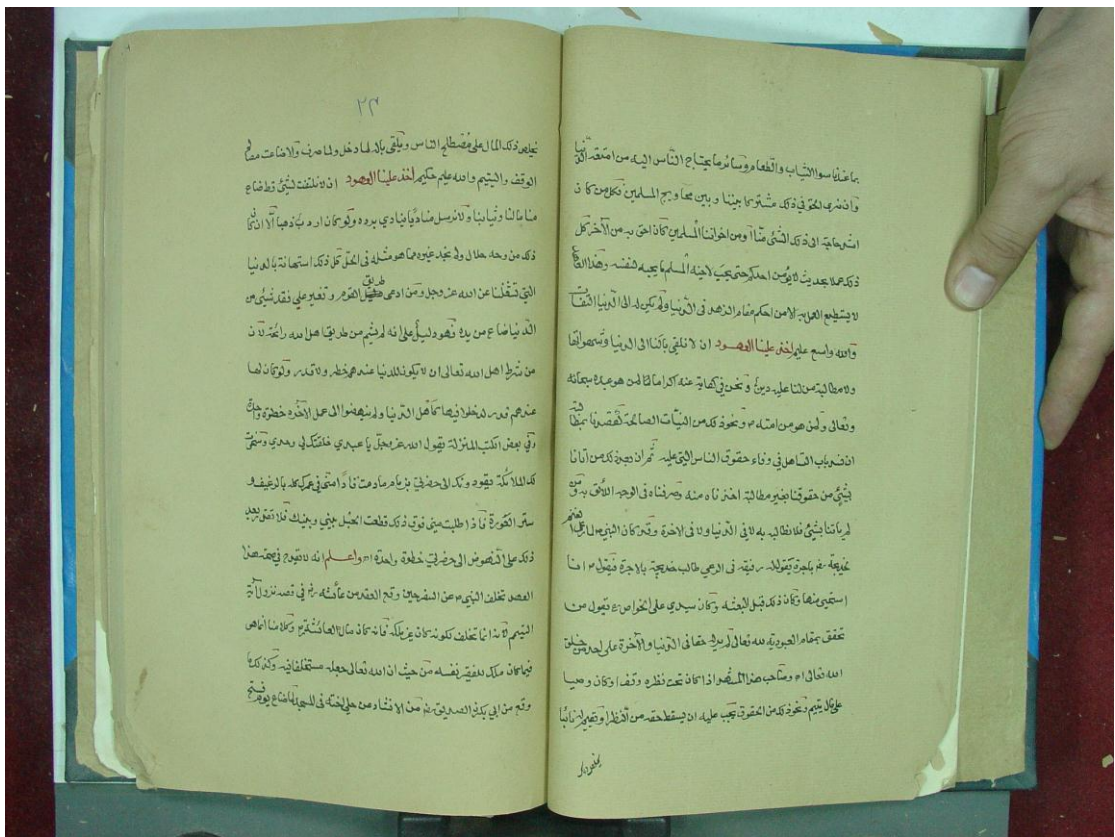 بما عندنا سوا الثياب والطعام وسائر ما يحتاج الناس اليه من امتعة الدنيا
وان نرى الحق في ذلك مشتركا بيننا وبين محاويج المسلمين فكل من كان
اشد حاجة الى ذلك الشئ منا او من اخواننا المسلمين كان احق به من الآخر كل
ذلك عملا بحديث لا يؤمن احدكم حتى يحب لاخيه المسلم ما يحبه لنفسه وهذا
لا يستطيع العمل به الا من احكم مقام الزهد في الدنيا ولم يكن له الى الدنيا التفات
والله واسع عليم اخذ علينا العهود ان لا نلقي بالنا الى الدنيا وشهواتها
ولا مطالبة من لنا عليه دين ونحن في كفاية عنه اكراما لمن هو عبده سبحانه
وتعالى ولمن هو من امته م ونحو ذلك من النيات الصالحة
باب التساهل في وفاء حقوق الناس التي عليه ثم ان بعد ذلك من اتانا
بشئ من حقوقنا بغير مطالبة اخذناه منه وصرفناه في الوجه اللائق به ومن
لم ياتنا بشئ فلا نطالبه به لا في الدنيا ولا في الآخرة وقد كان النبي م
خديجة رضي باجرة يقول له رفيقه في الرعي طالب خديجة بالاجرة فيقول م انا
استحيي منها وكان ذلك قبل البعثة وكان سيدي علي الخواص رح يقول من
تحقق بمقام العبودية لله تعالى لم ير له حقا في الدنيا والآخرة على احد من خلق
الله تعالى اه وصاحب هذا المشهد اذا كان تحت نظره وقف او كان وصيا
على مال يتيم ونحو ذلك من الحقوق يجب عليه ان يسقط حقه من النظر او يقيم له نائبا
يخلص ذلك
٢٣
يخلص ذلك المال على مصطلح الناس ويلقى باله لما دخل ولما صرف والا ضاعت مصالح
الوقف واليتيم والله عليم حكيم اخذ علينا العهود ان لا نلتفت لشئ قط ضاع
منا مالنا وثيابنا ولا نرسل مناديا ينادي برده ولو كان اردب ذهبا الا ان كان
ذلك من وجه حلال ولم نجد غيره مما هو مثله في الحل كل ذلك استهانة بالدنيا
التي تشغلنا عن الله عز وجل ومن ادعى طريق القوم وتغير على فقد شئ من
الدنيا ضاع من يده فهو دليل على انه لم يشم من طريق اهل الله رائحة لان
من شرط اهل الله تعالى ان لا يكون للدنيا عندهم خطر ولا قدر ولو كان لها
عندهم قدر لدخلوا فيها كاهل الدنيا ولم ينهضوا الى عمل الآخرة خطوة واحدة
وفي بعض الكتب المنزلة يقول الله عز وجل يا عبدي خلقتك لي وحدي وسخرت
لك الملائكة يقودونك الى حضرتي بزمام ما دمت قانعا مني في عمرك كله بالرغيف و
ستر العورة فاذا طلبت مني فوق ذلك قطعت الحبل بيني وبينك فلا تقدر بعد
ذلك على النهوض الى حضرتي خطوة واحدة اه واعلم انه لا يقدح في صحة هذا
العهد تخلف النبي م عن السفر حين وقع العقد من عائشة رضي في قصة نزول آية
التيمم لانه انما تخلف لكونه كان غير ملكه فانه كان مثلا لعائشة رضي وكلامنا انما هو
فيما كان ملك للفقير نفسه من حيث ان الله تعالى جعله مستخلفا فيه وكذلك ما
وقع من ابي بكر الصديق رضي من على اخته في المسجد لما ضاع يوم فتح